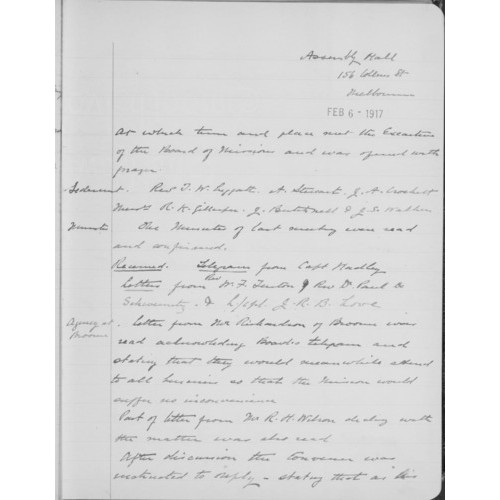 Assembly Hall
156 Collins St
Melbourne
FEB 6 - 1917
At which time and place met the Executive
of the Board of Missions and was opened with
prayer
Sederunt. Rev. T. W. Leggatt. A Stewart. J. A. Crockett
Messrs R. H. Gillespie, J. & J. G. Walker
Minutes The Minutes of last meeting were read
and confirmed.
Received. Telegram from Capt Hadley
Letters from Rev W. F. Tenton & Rev Dr Paul
& L/cpl J. R. B. Love
Agency at Broome. Letter from Mr Richardson of Broome was
read acknowledging Board's telegram and
stating that they would meanwhile attend
to all business so that the Mission would
suffer no inconvenience
Part of letter from Mr R. H. Wilson dealing with
the matter was also read
After discussion the Convener was
instructed to reply - stating that as this